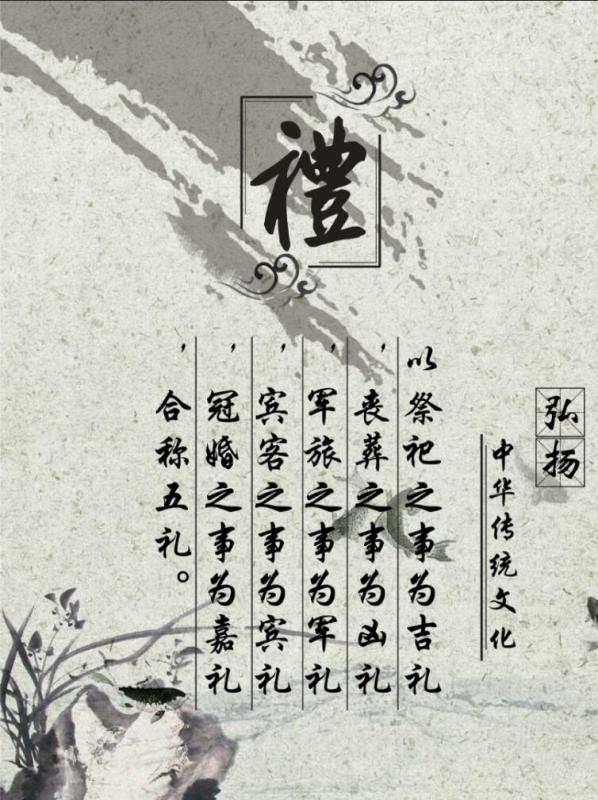 禮
弘扬
中华传统文化
以祭祀之事为吉礼
，丧葬之事为凶礼
，军旅之事为军礼
，宾客之事为宾礼
，冠婚之事为嘉礼
，合称五礼。